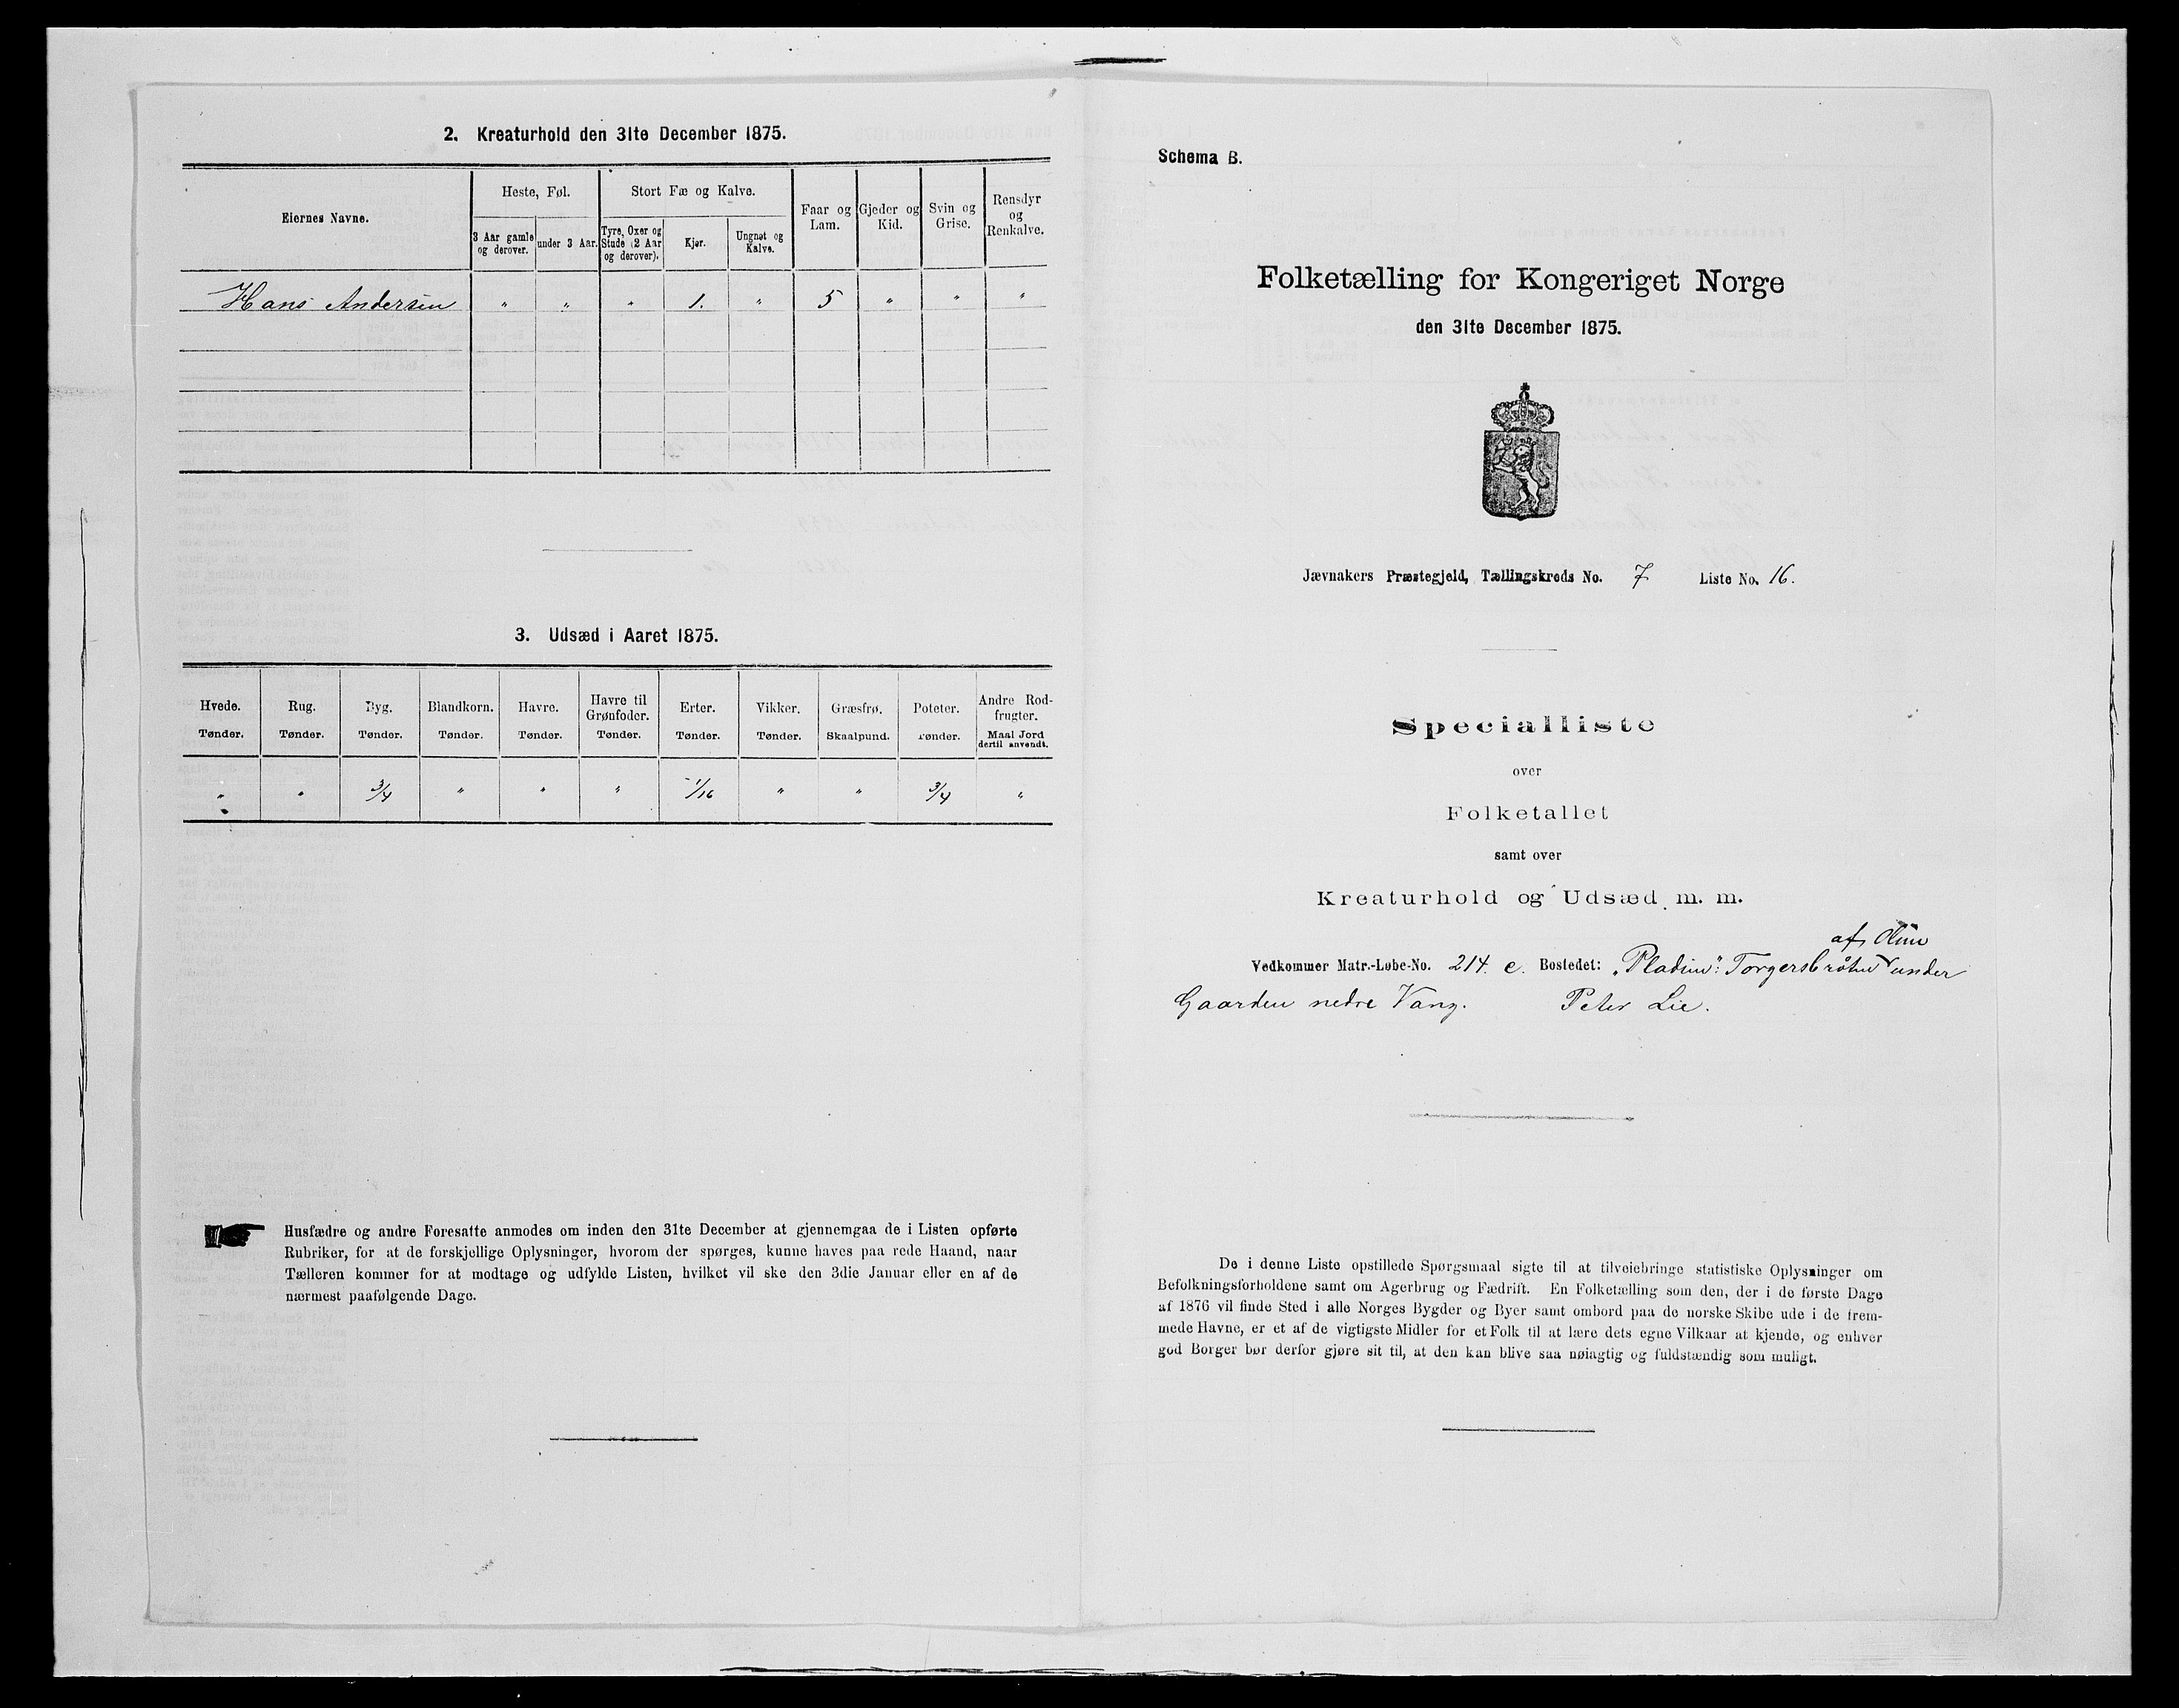 2. Kreaturhold den 31te December 1875.
Eiernes Navne.
Heste, Føl.
Stort Fæ og Kalve.
Faar og Lam.
Gjeder og Kid.
Svin og Grise.
Rensdyr og Renkalve.
3 Aar gamle og derover.
under 3 Aar.
Tyre, Oxer og Stude (2 Aar og derover).
Kjør.
Ungnøt og Kalve.
Hans Andersen " " " 1. " 5 " " "
3. Udsæd i Aaret 1875.
Hvede. Rug. Byg. Blandkorn. Havre. Havre til Grønfoder. Erter. Vikker. Græsfrø. Poteter. Andre Rodfrugter.
Tønder. Tønder. Tønder. Tønder. Tønder. Tønder. Tønder. Tønder. Skaalpund. Tønder. Maal Jord dertil anvendt.
" " 3/4 " " " 1/16 " " 3/4 "
Husfædre og andre Foresatte anmodes om inden den 31te December at gjennemgaa de i Listen opførte
Rubriker, for at de forskjellige Oplysninger, hvorom der spørges, kunne haves paa rede Haand, naar
Tælleren kommer for at modtage og udfylde Listen, hvilket vil ske den 3die Januar eller en af de
nærmest paafølgende Dage.
Schema B.
Folketælling for Kongeriget Norge
den 31te December 1875.
Jævnakers Præstegjeld, Tællingskreds No. 7 Liste No. 16.
Specialliste
over
Folketallet
samt over
Kreaturhold og Udsæd m. m.
af
Vedkommer Matr.-Løbe-No. 214. c. Bostedet: "Pladsen": Torgersbråten under
Gaarden nedre Vang. Peter Lie.
De i denne Liste opstillede Spørgsmaal sigte til at tilveiebringe statistiske Oplysninger om
Befolkningsforholdene samt om Agerbrug og Fædrift. En Folketælling som den, der i de første Dage
af 1876 vil finde Sted i alle Norges Bygder og Byer samt ombord paa de norske Skibe ude i de frem-
mede Havne, er et af de vigtigste Midler for et Folk til at lære dets egne Vilkaar at kjende, og enhver
god Borger bør derfor gjøre sit til, at den kan blive saa nøiagtig og fuldstændig som muligt.